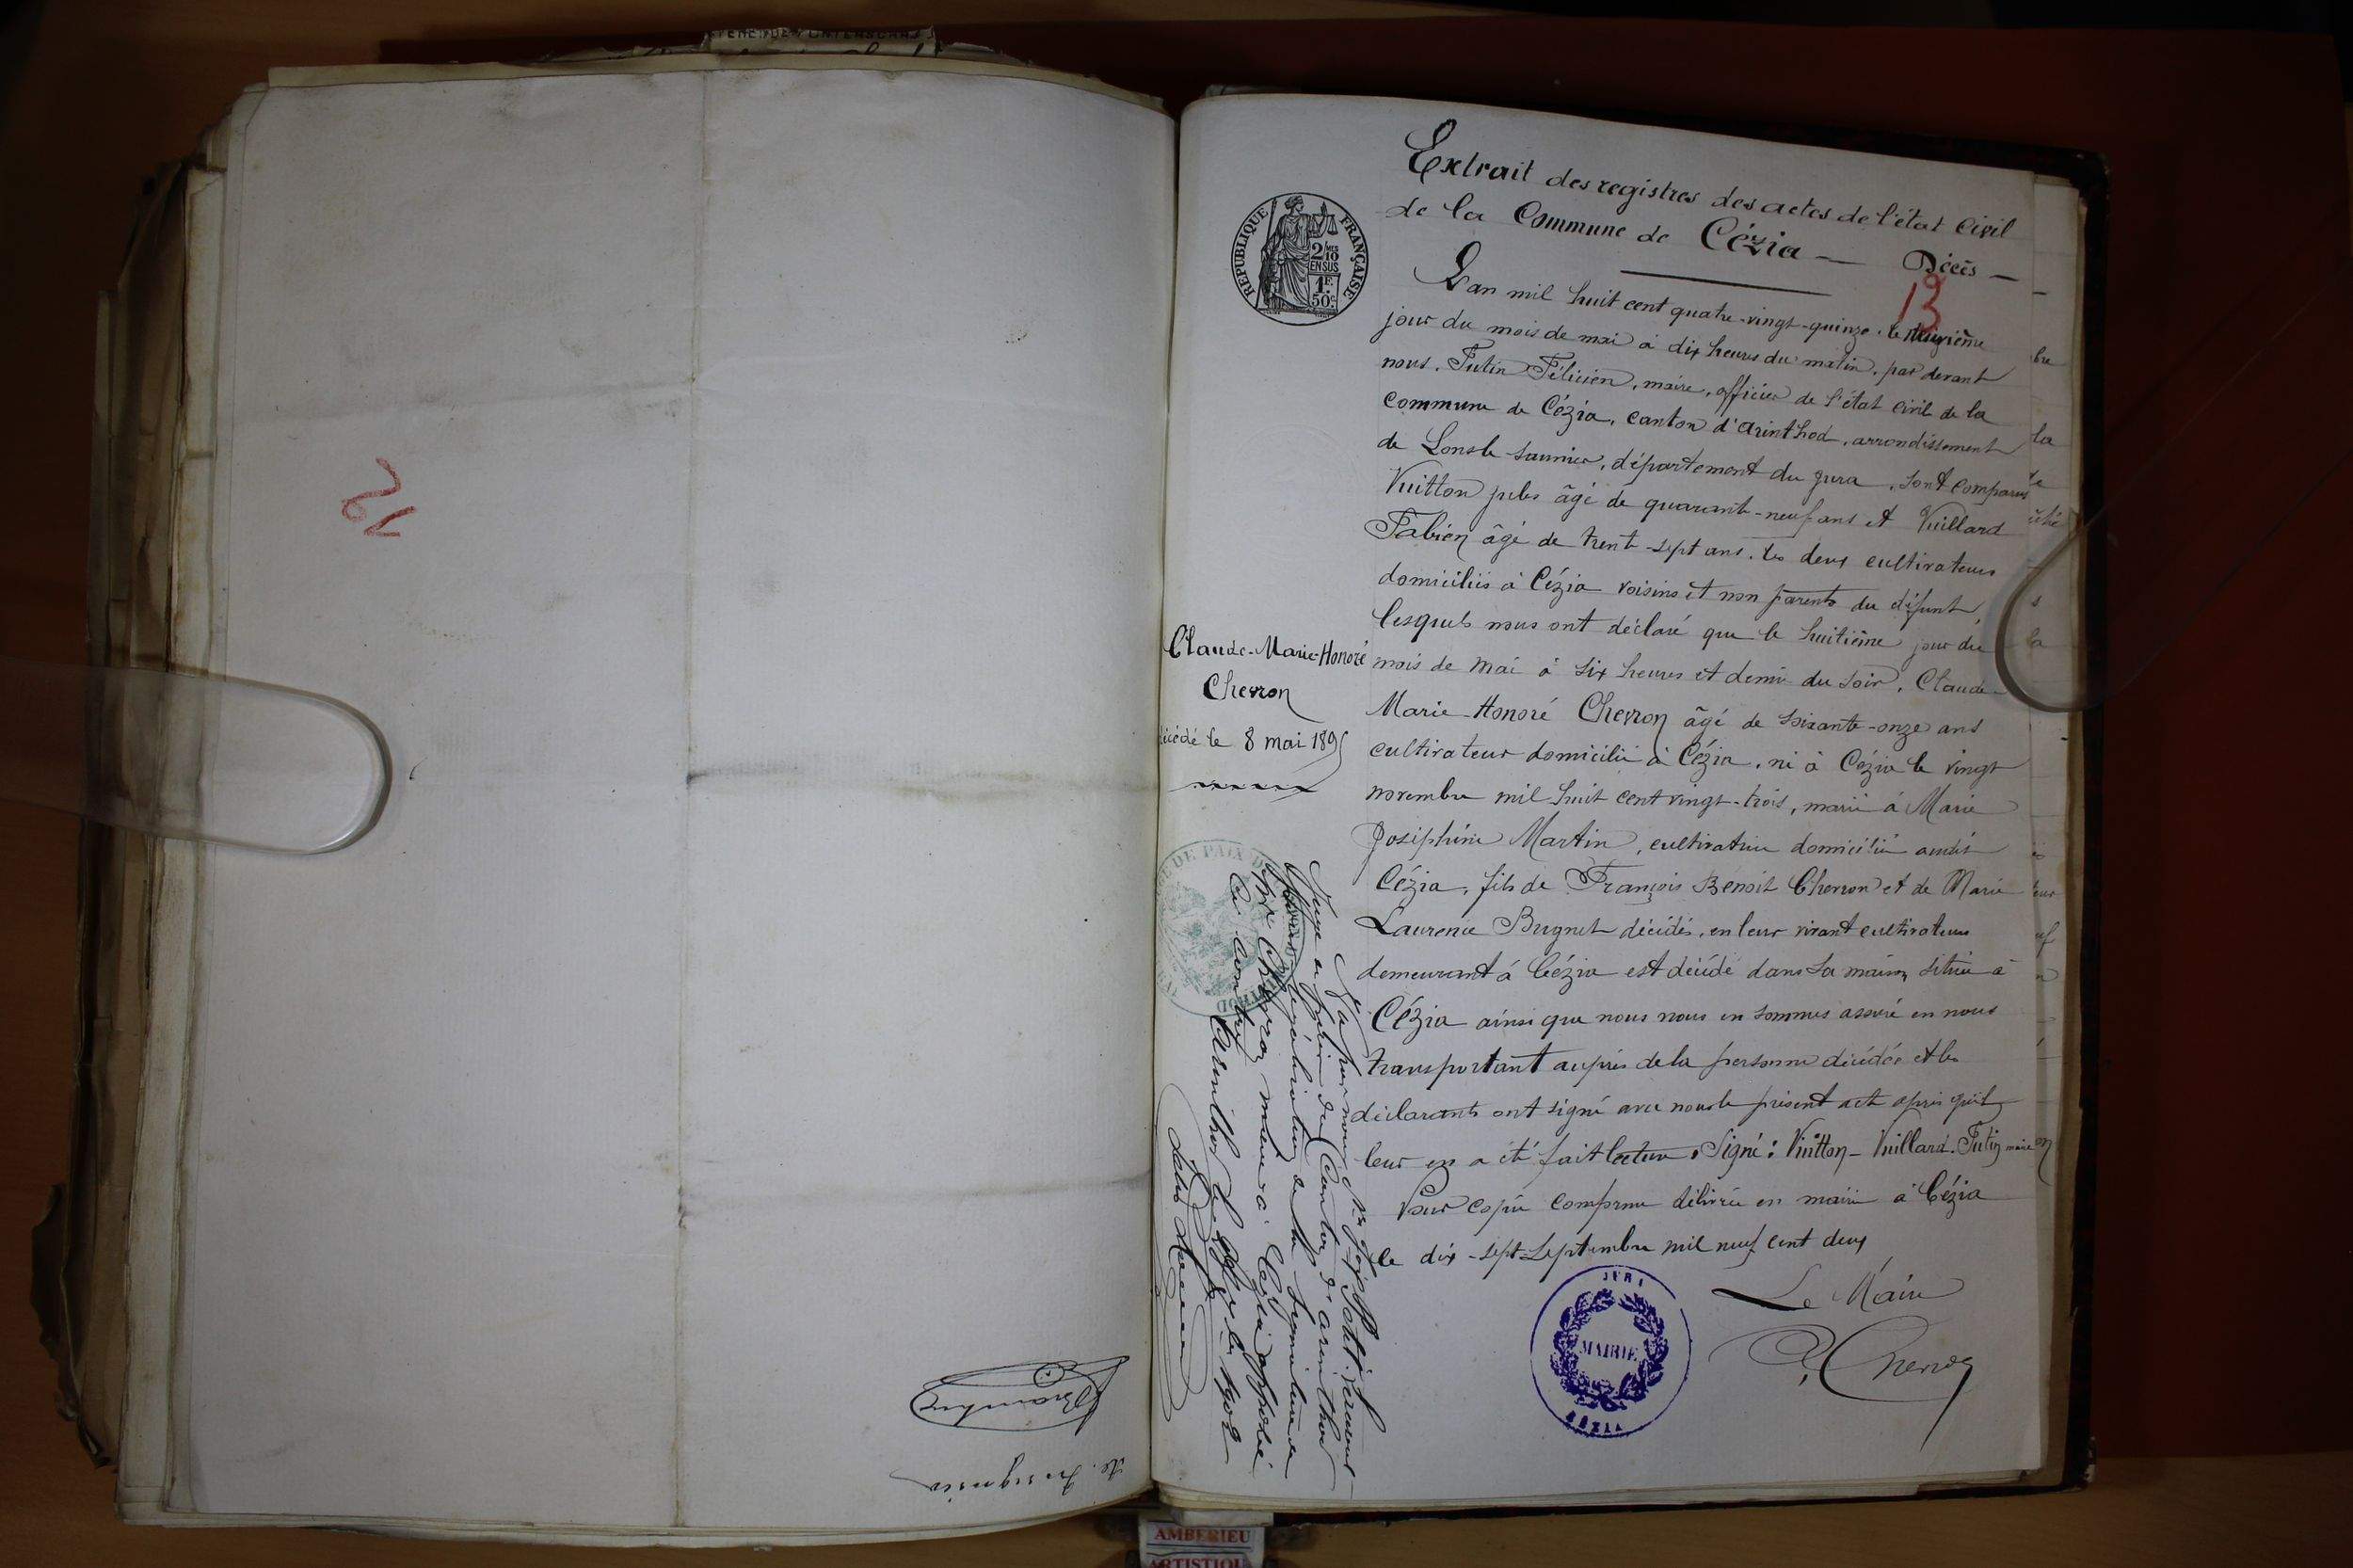 12
Extrait des registres des actes de l'état Civil
de la Commune de Cézia — Décès —
13
RÉPUBLIQUE FRANÇAISE
2/10 MES
EN SUS
1F.
50c.
L'an mil huit cent quatre-vingt-quinze, le neuvième
jour du mois de mai à dix heures du matin, par devant
nous, Futin Félicien, maire, officier de l'état civil de la
Commune de Cézia, canton d'Arinthod, arrondissement
de Lons-le-Saunier, département du Jura, sont comparus
Vuitton jules âgé de quarante-neuf ans et Vuillard
Fabien âgé de trente-sept ans, les deux cultivateurs
domiciliés à Cézia voisins et non parents du défunt,
lesquels nous ont déclaré que le huitième jour du
mois de mai à six heures et demie du soir, Claude-
Marie-Honoré Chevron âgé de soixante-onze ans
cultivateur domicilié à Cézia, né à Cézia le vingt
novembre mil huit cent vingt-trois, marié à Marie
Joséphine Martin, cultivatrice domiciliée audit
Cézia, fils de François Benoit Chevron et de Marie
Laurence Bugnet décédés, en leur vivant cultivateurs
demeurant à Cézia est décédé dans sa maison située à
Cézia ainsi que nous nous en sommes assuré en nous
transportant auprès de la personne décédée et les
déclarants ont signé avec nous le présent acte après qu'il
leur en a été fait lecture. Signé : Vuitton - Vuillard. Futin maire
Pour copie conforme délivrée en mairie à Cézia
le dix-sept Septembre mil neuf cent deux
Le Maire
Chevron
JURA
MAIRIE
CÉZIA
Claude-Marie-Honoré
Chevron
décédé le 8 mai 1895
DE PAIX
Vu par nous
Juge de paix du Canton d'Arinthod
pour légalisation de la signature de
Mr Chevron maire à Cézia apposée
ci contre
Arinthod le 1902
AMBERIEU
ARTISTIQU